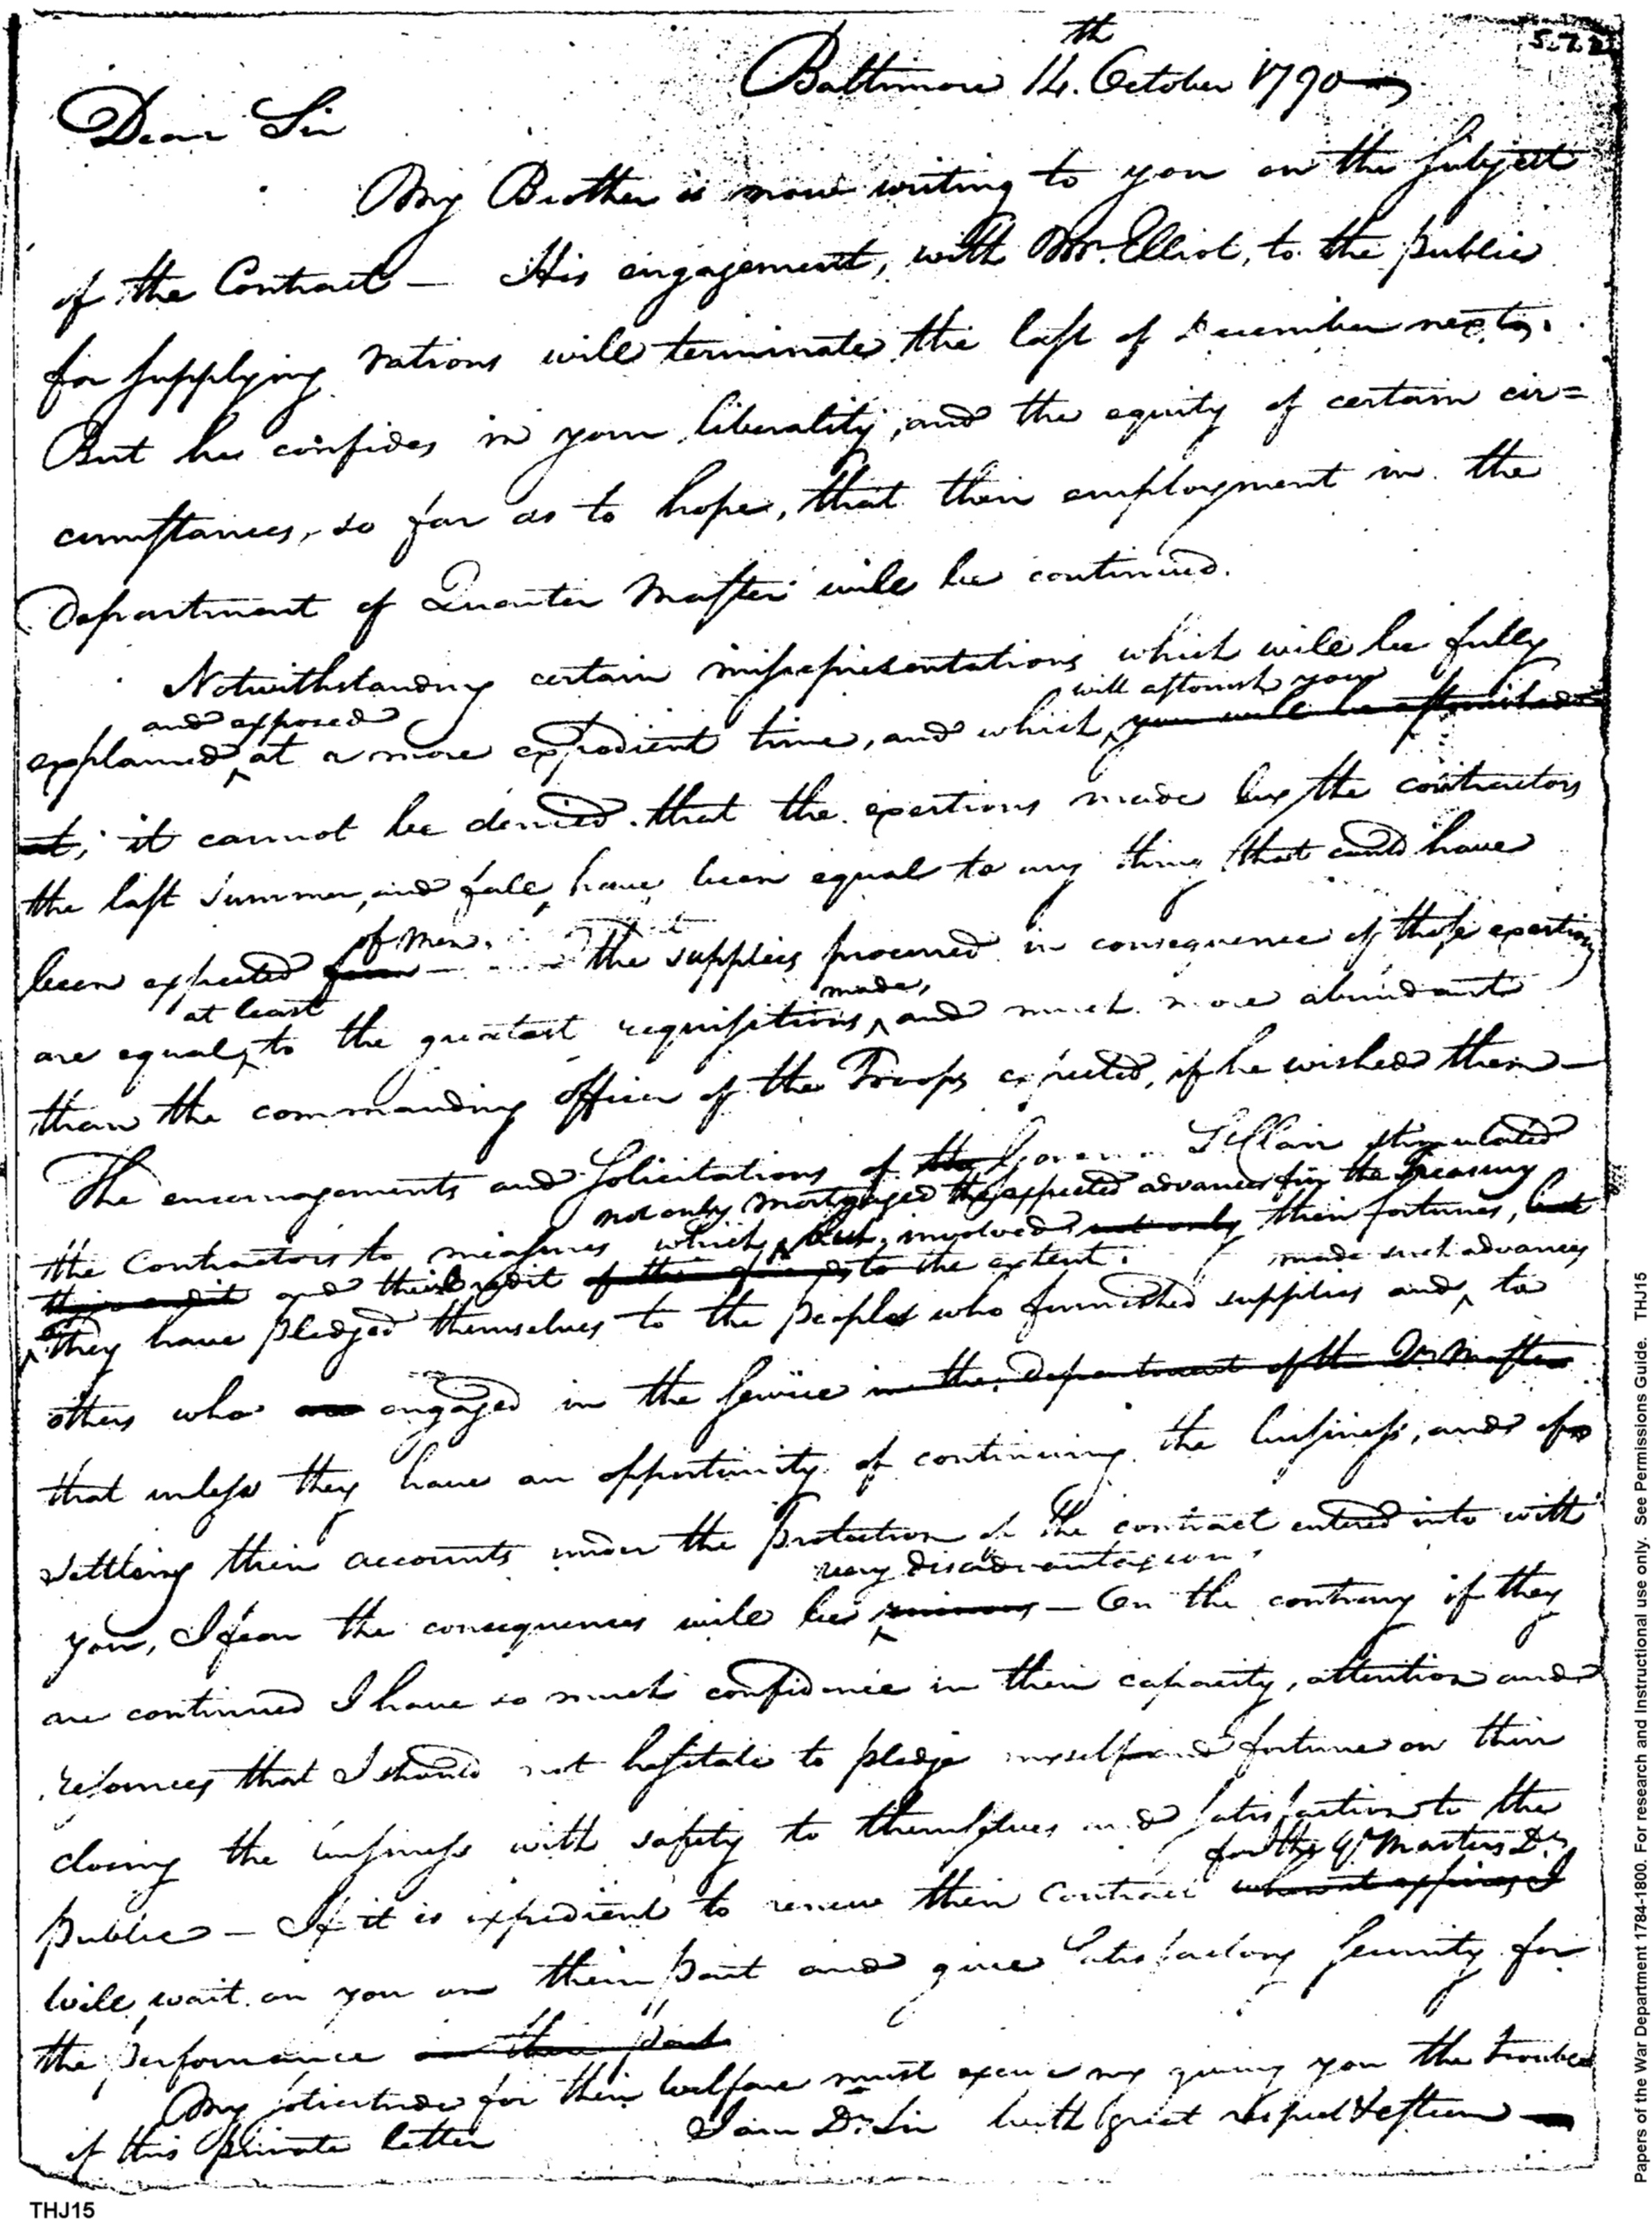 5.7.2
Baltimore 14th. October 1790
Dear Sir
My Brother is now writing to you on the subject
of the Contract — His engagement, with Mr. Elliot, to the public
for supplying rations will terminate the last of December next.
But he confides in your liberality, and the equity of certain cir=
cumstances, so far as to hope, that their employment in the
Department of Quarter Master will be continued.
Notwithstanding certain misrepresentations which will be fully
and exposed will astonish you
explained at a more expedient time, and which you will be astonished
at, it cannot be denied that the exertions made by the contractors
the last summer, and fall, have been equal to any thing that could have
of men.
been expected from — the supplies procured in consequence of those exertions
at least made,
are equal, to the greatest requisitions, and much more abundant
than the commanding officer of the Troops expected, if he wished them —
The encouragements and solicitations of the St Clair stimulated
not only mortgaged the expected advances for the Treasury
the Contractors to measures which, but, involved not only their fortunes, but
their credit and their credit to the extent. made such advances
They have pledged themselves to the people who furnished supplies and to
others who are engaged in the service in the department of the Qr Master
that unless they have an opportunity of continuing the business, and of
settling their accounts under the protection of the contract entered into with
very disadvantageous
you, I fear the consequences will be ruinous — On the contrary if they
are continued I have so much confidence in their capacity, attention and
resources that I should not hesitate to pledge myself and fortune on their
closing the business with safety to themselves and satisfaction to the
for the Qr Masters Dt.
public — If it is expedient to renew their Contract when it expires I
will wait on you on their part and give satisfactory security for
the performance on their part
My solicitude for their welfare must excuse my giving you the trouble
of this private letter I am Dr. Sir with great respect & esteem —
THJ15
Papers of the War Department 1784-1800. For research and Instructional use only. See Permissions Guide. THJ15